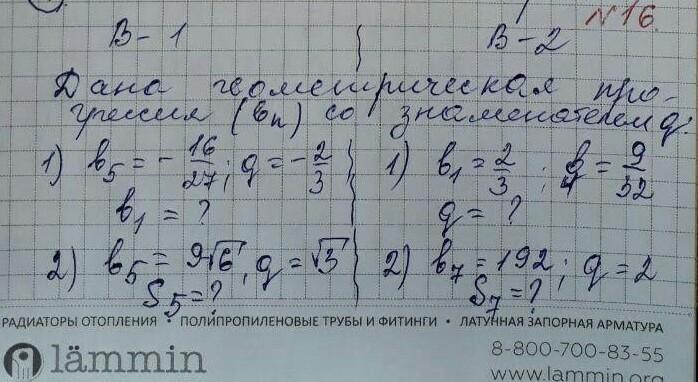 N16.
В-1 В-2
Дана геометрическая про-
грессия (bn) со знаменателем q.
1) b5 = -16/27; q = -2/3 1) b1 = 2/3; b4 = 9/32
b1 = ? q = ?
2) b5 = 9√6, q = √3 2) b7 = 192; q = 2
S5 = ? S7 = ?
РАДИАТОРЫ ОТОПЛЕНИЯ • ПОЛИПРОПИЛЕНОВЫЕ ТРУБЫ И ФИТИНГИ • ЛАТУННАЯ ЗАПОРНАЯ АРМАТУРА
lämmin 8-800-700-83-55
www.lammin.org